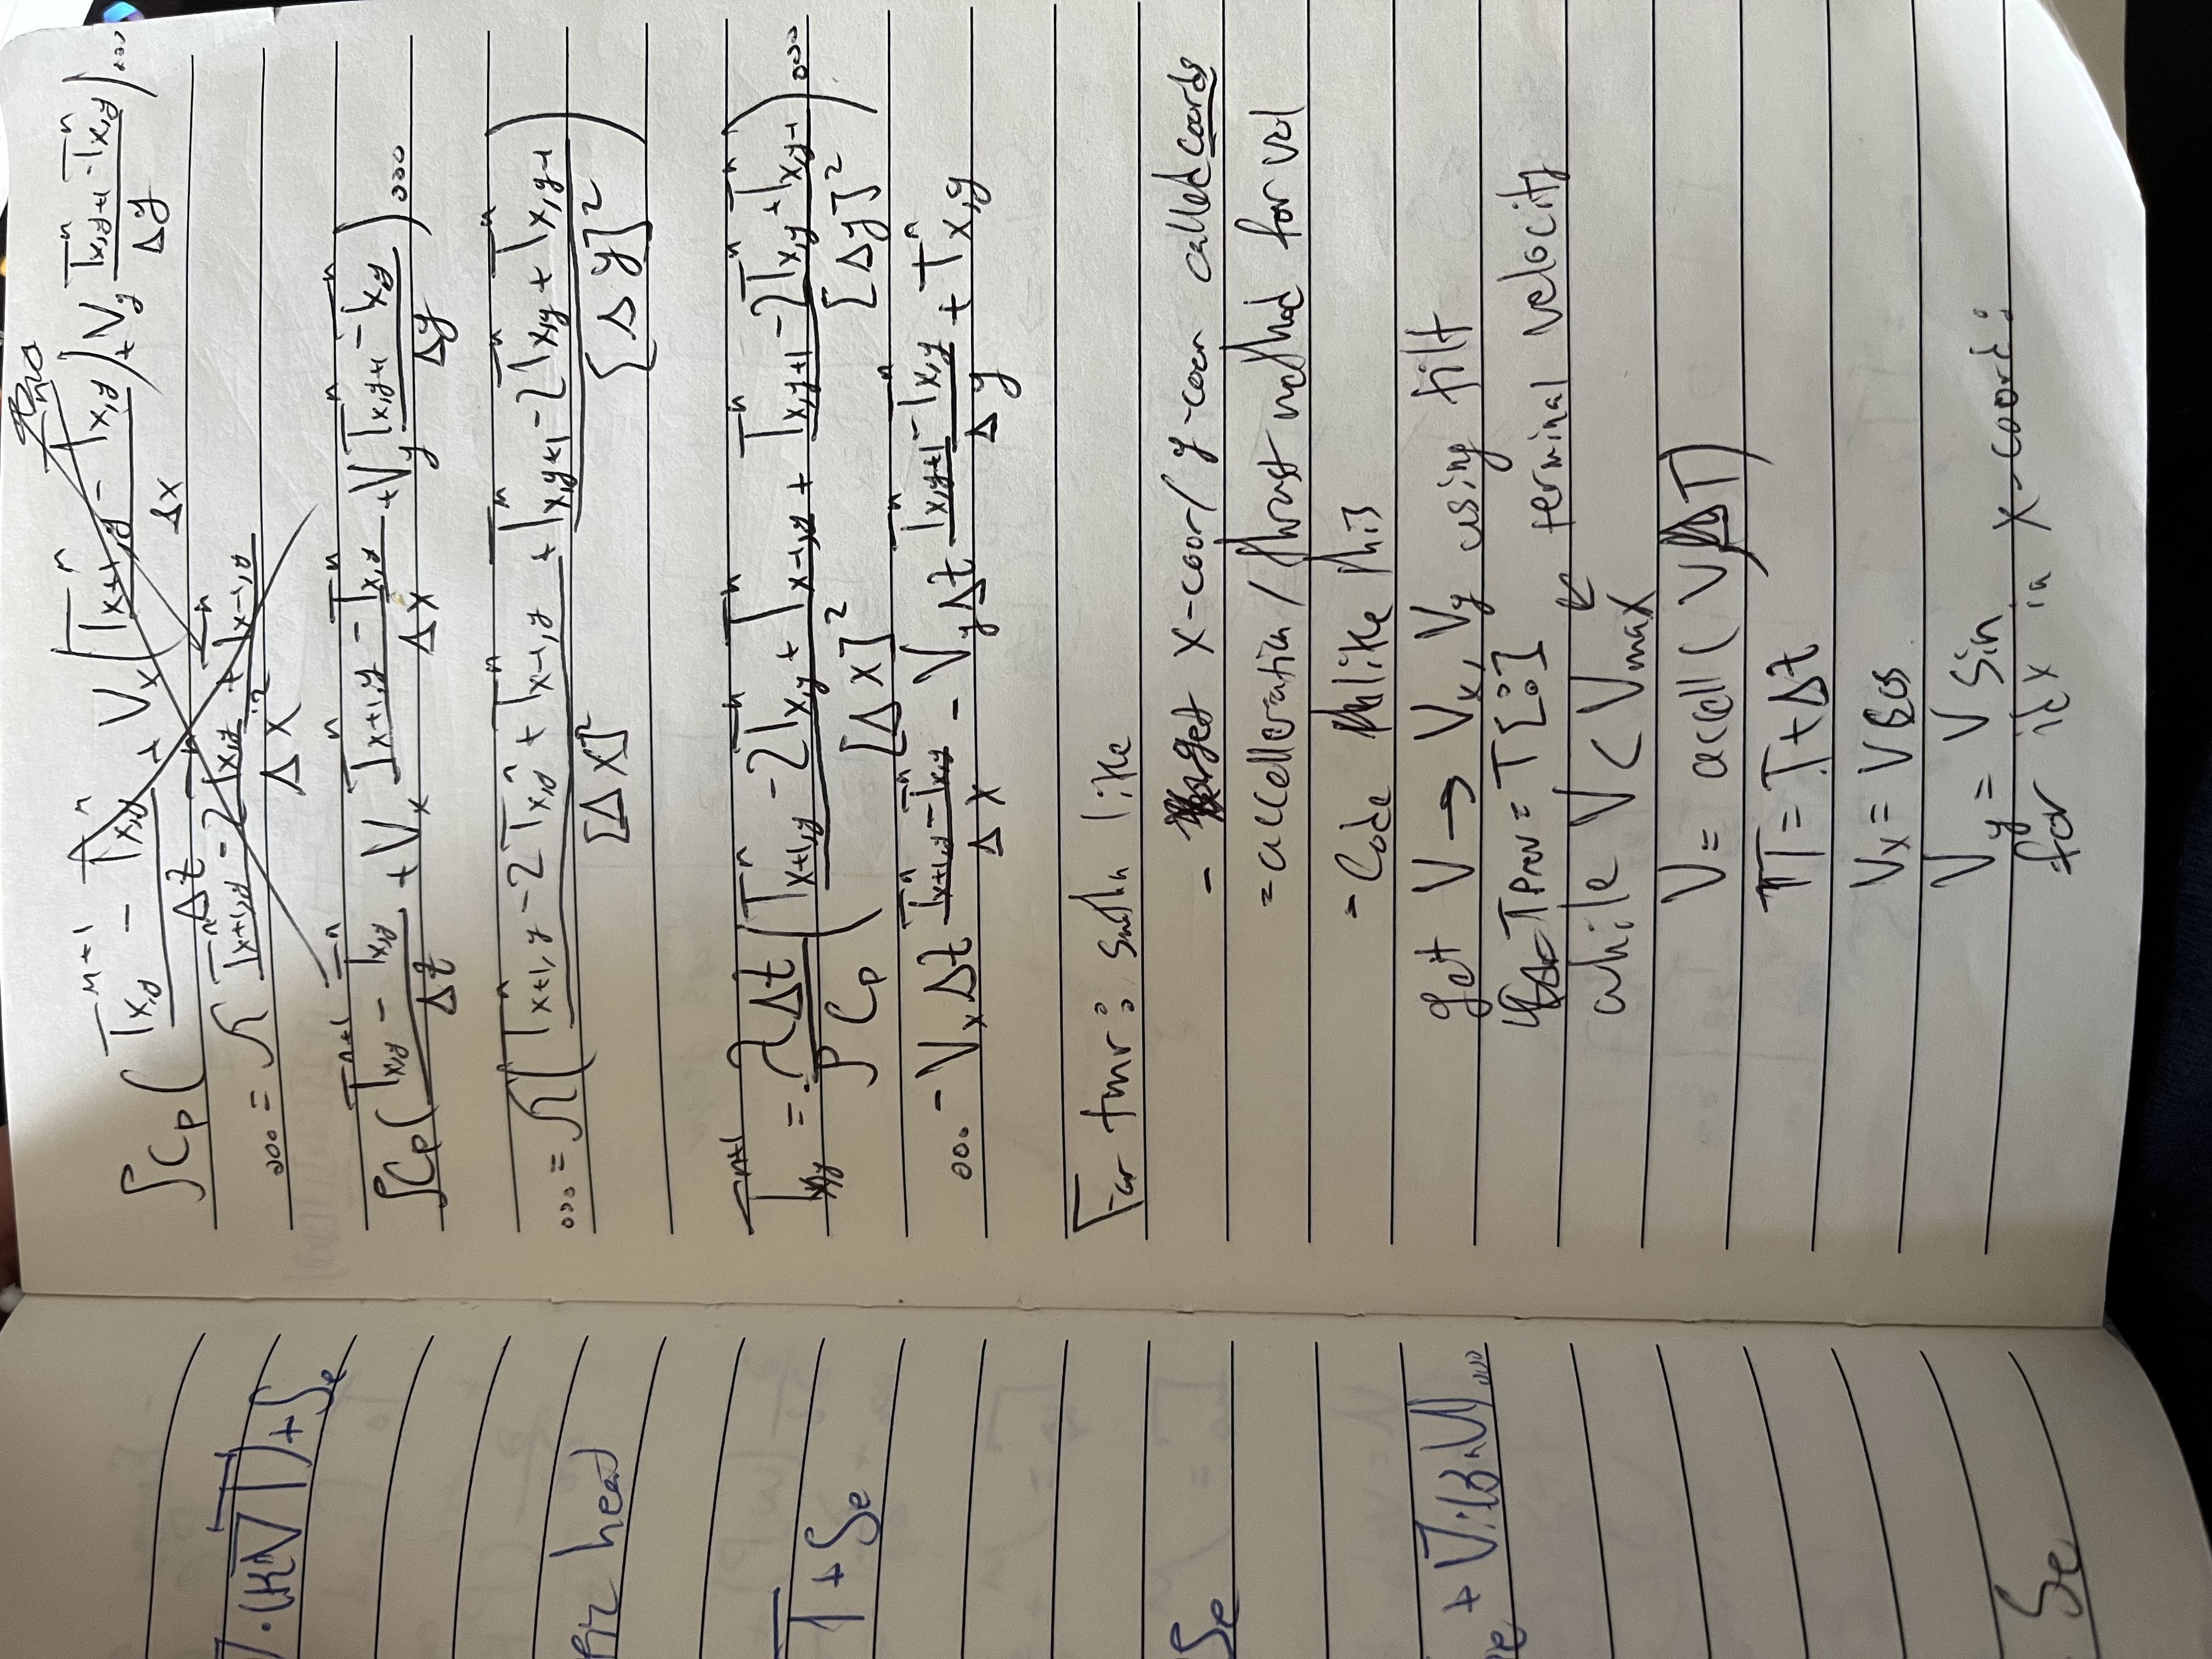 ∇·(K∇T)+Se
er heat
T + Se
Se
e + ∇·(β·U)...
Se
ρCp( (T^{n+1}_{x,y} - T^n_{x,y})/Δt + Vx((T^n_{x+1,y} - T^n_{x,y})/Δx) + Vy (T^n_{x,y+1} - T^n_{x,y})/Δy )...
... = λ (T^n_{x+1,y} - 2T^n_{x,y} + T^n_{x-1,y})/Δx^2
ρCp( (T^{n+1}_{x,y} - T^n_{x,y})/Δt + Vx (T^n_{x+1,y} - T^n_{x,y})/Δx + Vy (T^n_{x,y+1} - T^n_{x,y})/Δy )...
... = λ( (T^n_{x+1,y} - 2T^n_{x,y} + T^n_{x-1,y})/[Δx]^2 + (T^n_{x,y+1} - 2T^n_{x,y} + T^n_{x,y-1})/[Δy]^2 )
T^{n+1}_{x,y} = λΔt/ρCp ( (T^n_{x+1,y} - 2T^n_{x,y} + T^n_{x-1,y})/[Δx]^2 + (T^n_{x,y+1} - 2T^n_{x,y} + T^n_{x,y-1})/[Δy]^2 )...
... - VxΔt (T^n_{x+1,y} - T^n_{x,y})/Δx - VyΔt (T^n_{x,y+1} - T^n_{x,y})/Δy + T^n_{x,y}
For tmr: smthn like
- get x-coor/ y-coor called coords
- accelleration / thrust method for vel
- Code like this
get V → Vx, Vy using tilt
Tprev = T[:]
while V < Vmax ← terminal velocity
V = accell( V, ΔT)
T = T + Δt
Vx = V cos
Vy = V sin
for idx in x-coord: